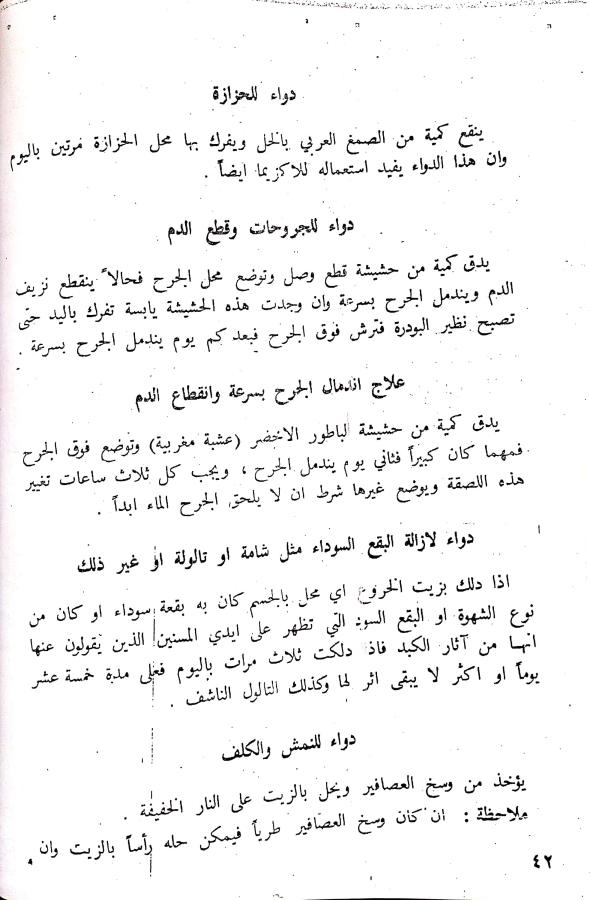 دواء للحزازة
ينقع كمية من الصمغ العربي بالخل ويفرك بها محل الحزازة مرتين باليوم
وان هذا الدواء يفيد استعماله للاكزيما ايضاً .
دواء للجروحات وقطع الدم
يدق كمية من حشيشة قطع وصل وتوضع محل الجرح فحالاً ينقطع نزيف
الدم ويندمل الجرح بسرعة وان وجدت هذه الحشيشة يابسة تفرك باليد حتى
تصبح نظير البودرة فترش فوق الجرح فبعد كم يوم يندمل الجرح بسرعة .
علاج اندمال الجرح بسرعة وانقطاع الدم
يدق كمية من حشيشة لباطور الاخضر (عشبة مغربية) وتوضع فوق الجرح
فمهما كان كبيراً فثاني يوم يندمل الجرح ، ويجب كل ثلاث ساعات تغيير
هذه اللصقة ويوضع غيرها شرط ان لا يلحق الجرح الماء ابداً .
دواء لازالة البقع السوداء مثل شامة او تالولة او غير ذلك
اذا دلك بزيت الخروع اي محل بالجسم كان به بقعة سوداء او كان من
نوع الشهوة او البقع السود التي تظهر على ايدي المسنين الذين يقولون عنها
انها من آثار الكبد فاذ دلكت ثلاث مرات باليوم فعلى مدة خمسة عشر
يوماً او اكثر لا يبقى اثر لها وكذلك التالول الناشف .
دواء للنمش والكلف
يؤخذ من وسخ العصافير ويحل بالزيت على النار الخفيفة .
ملاحظة : ان كان وسخ العصافير طرياً فيمكن حله رأساً بالزيت وان
٤٢